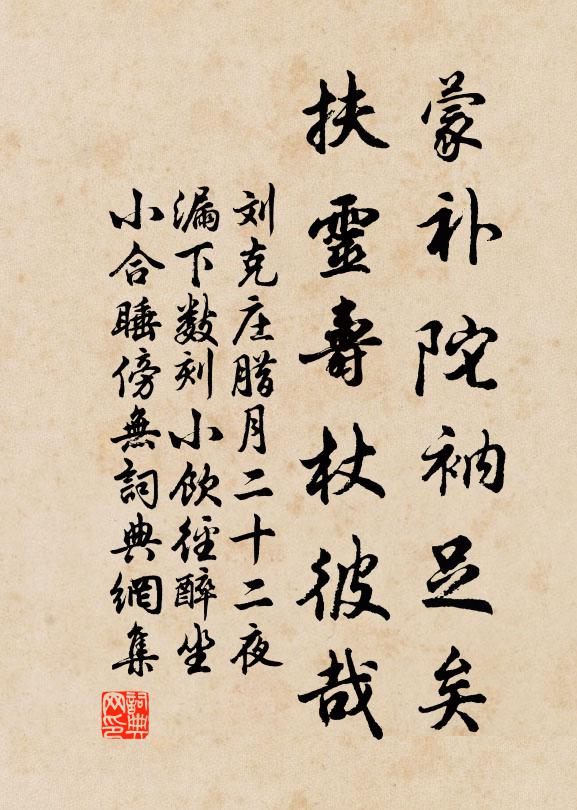 蒙补陀衲足矣
扶靈壽杖彼哉
刘克庄腊月二十二夜
漏下数刻小飲徑醉坐
小合睡傍無詞典網集
詞典网印